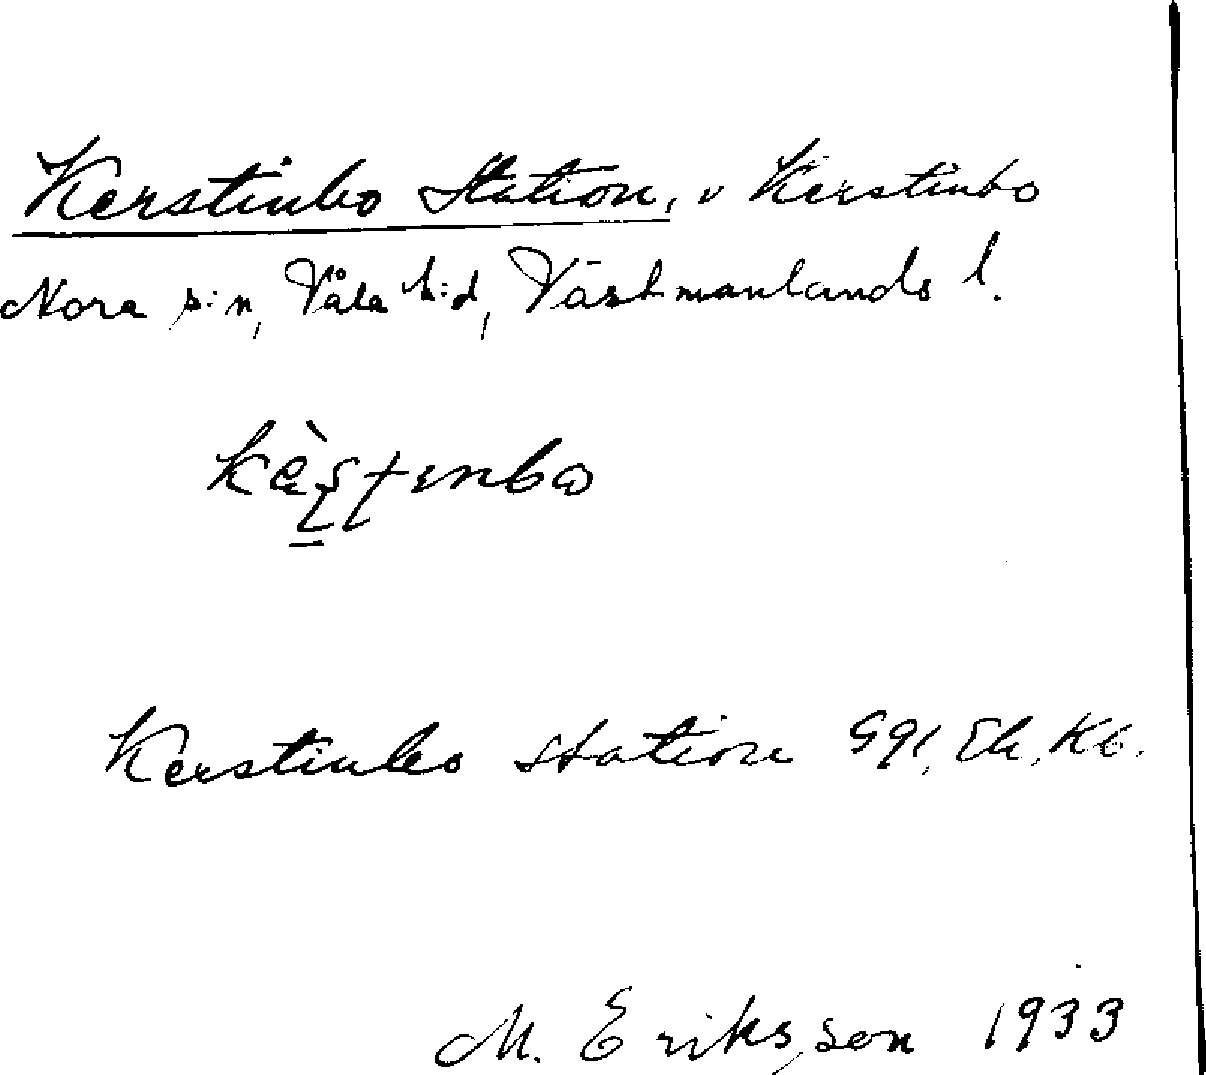 Kerstinbo Station, v Kerstinbo
Nora s:n, Våla h:d, Västmanlands l.
kès̱tinbω
Kerstinbo station Ggl, Ek, Kb.
M. Eriksson 1933